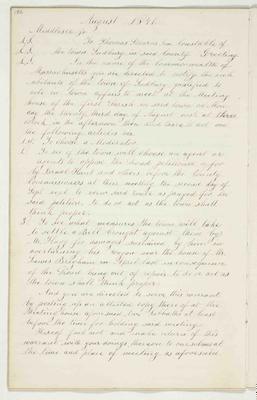 August 1841.
Middlesex ss.
L.S. To Thomas Stearns one Constable of
L.S. the town Sudbury in said County Greeting
L.S. In the name of the Commonwealth of
Massachusetts you are directed to notify the inh-
abitants of the town of Sudbury qualified to
vote in town affairs to meet at the Meeting
house of the first Parish in said town on Mon-
day the twenty third day of August inst at three
o'clock in the afternoon then and there to act on
the following articles viz.
1st. To choose a Moderator
2. To see if the town will choose an agent or
agents to oppose the road petitioned for
by Israel Hunt and others before the County
Commissioners at their meeting the second day of
Sept next to view said route as prayed for in
said petition to do or act as the town shall
think proper.
3. To see what measures the town will take
to settle a Bill brought against them by
Mr. for damages sustained by him in
overturning his wagon near the house of Mr
James Brigham in April last in consequence
of the Road being out of repair to do or act as
the town shall think proper.
And you are directed to serve this warrant
by posting up an attested copy thereof at the
Meeting house aforesaid two Sabbaths at least
before the time for holding said meeting.
Hereof fail not and make return of this
warrant with your doings thereon to ourselves at
the time and place of meeting as aforesaid